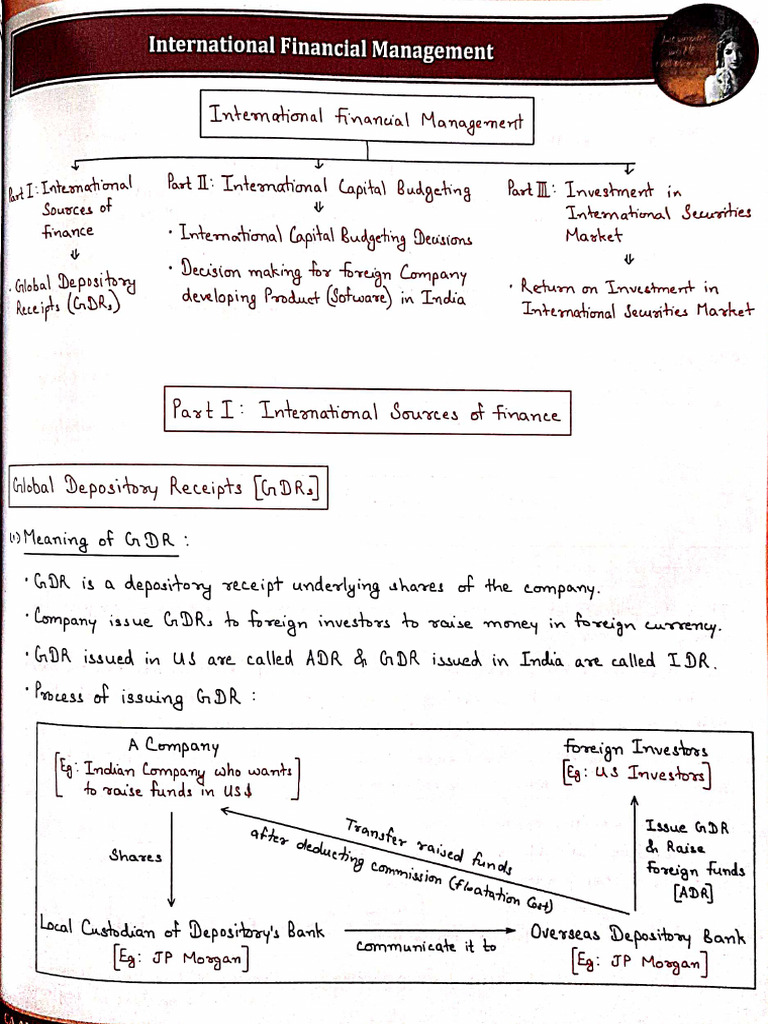 International Financial Management
International Financial Management
Part I: International
Sources of
finance
Global Depository
Receipts (GDRs)
Part II: International Capital Budgeting
• International Capital Budgeting Decisions
• Decision making for foreign Company
developing Product (Sofware) in India
Part III: Investment in
International Securities
Market
• Return on Investment in
International Securities Market
Part I: International Sources of finance
Global Depository Receipts [GDRs]
(1) Meaning of GDR:
• GDR is a depository receipt underlying shares of the company.
• Company issue GDRs to foreign investors to raise money in foreign currency.
• GDR issued in US are called ADR & GDR issued in India are called IDR.
• Process of issuing GDR:
A Company
[Eg: Indian Company who wants
to raise funds in US$]
foreign Investors
[Eg: US Investors]
Transfer raised funds
after deducting commission (floatation Cost)
Issue GDR
& Raise
foreign funds
[ADR]
Shares
Local Custodian of Depository's Bank
[Eg: JP Morgan]
communicate it to
Overseas Depository Bank
[Eg: JP Morgan]